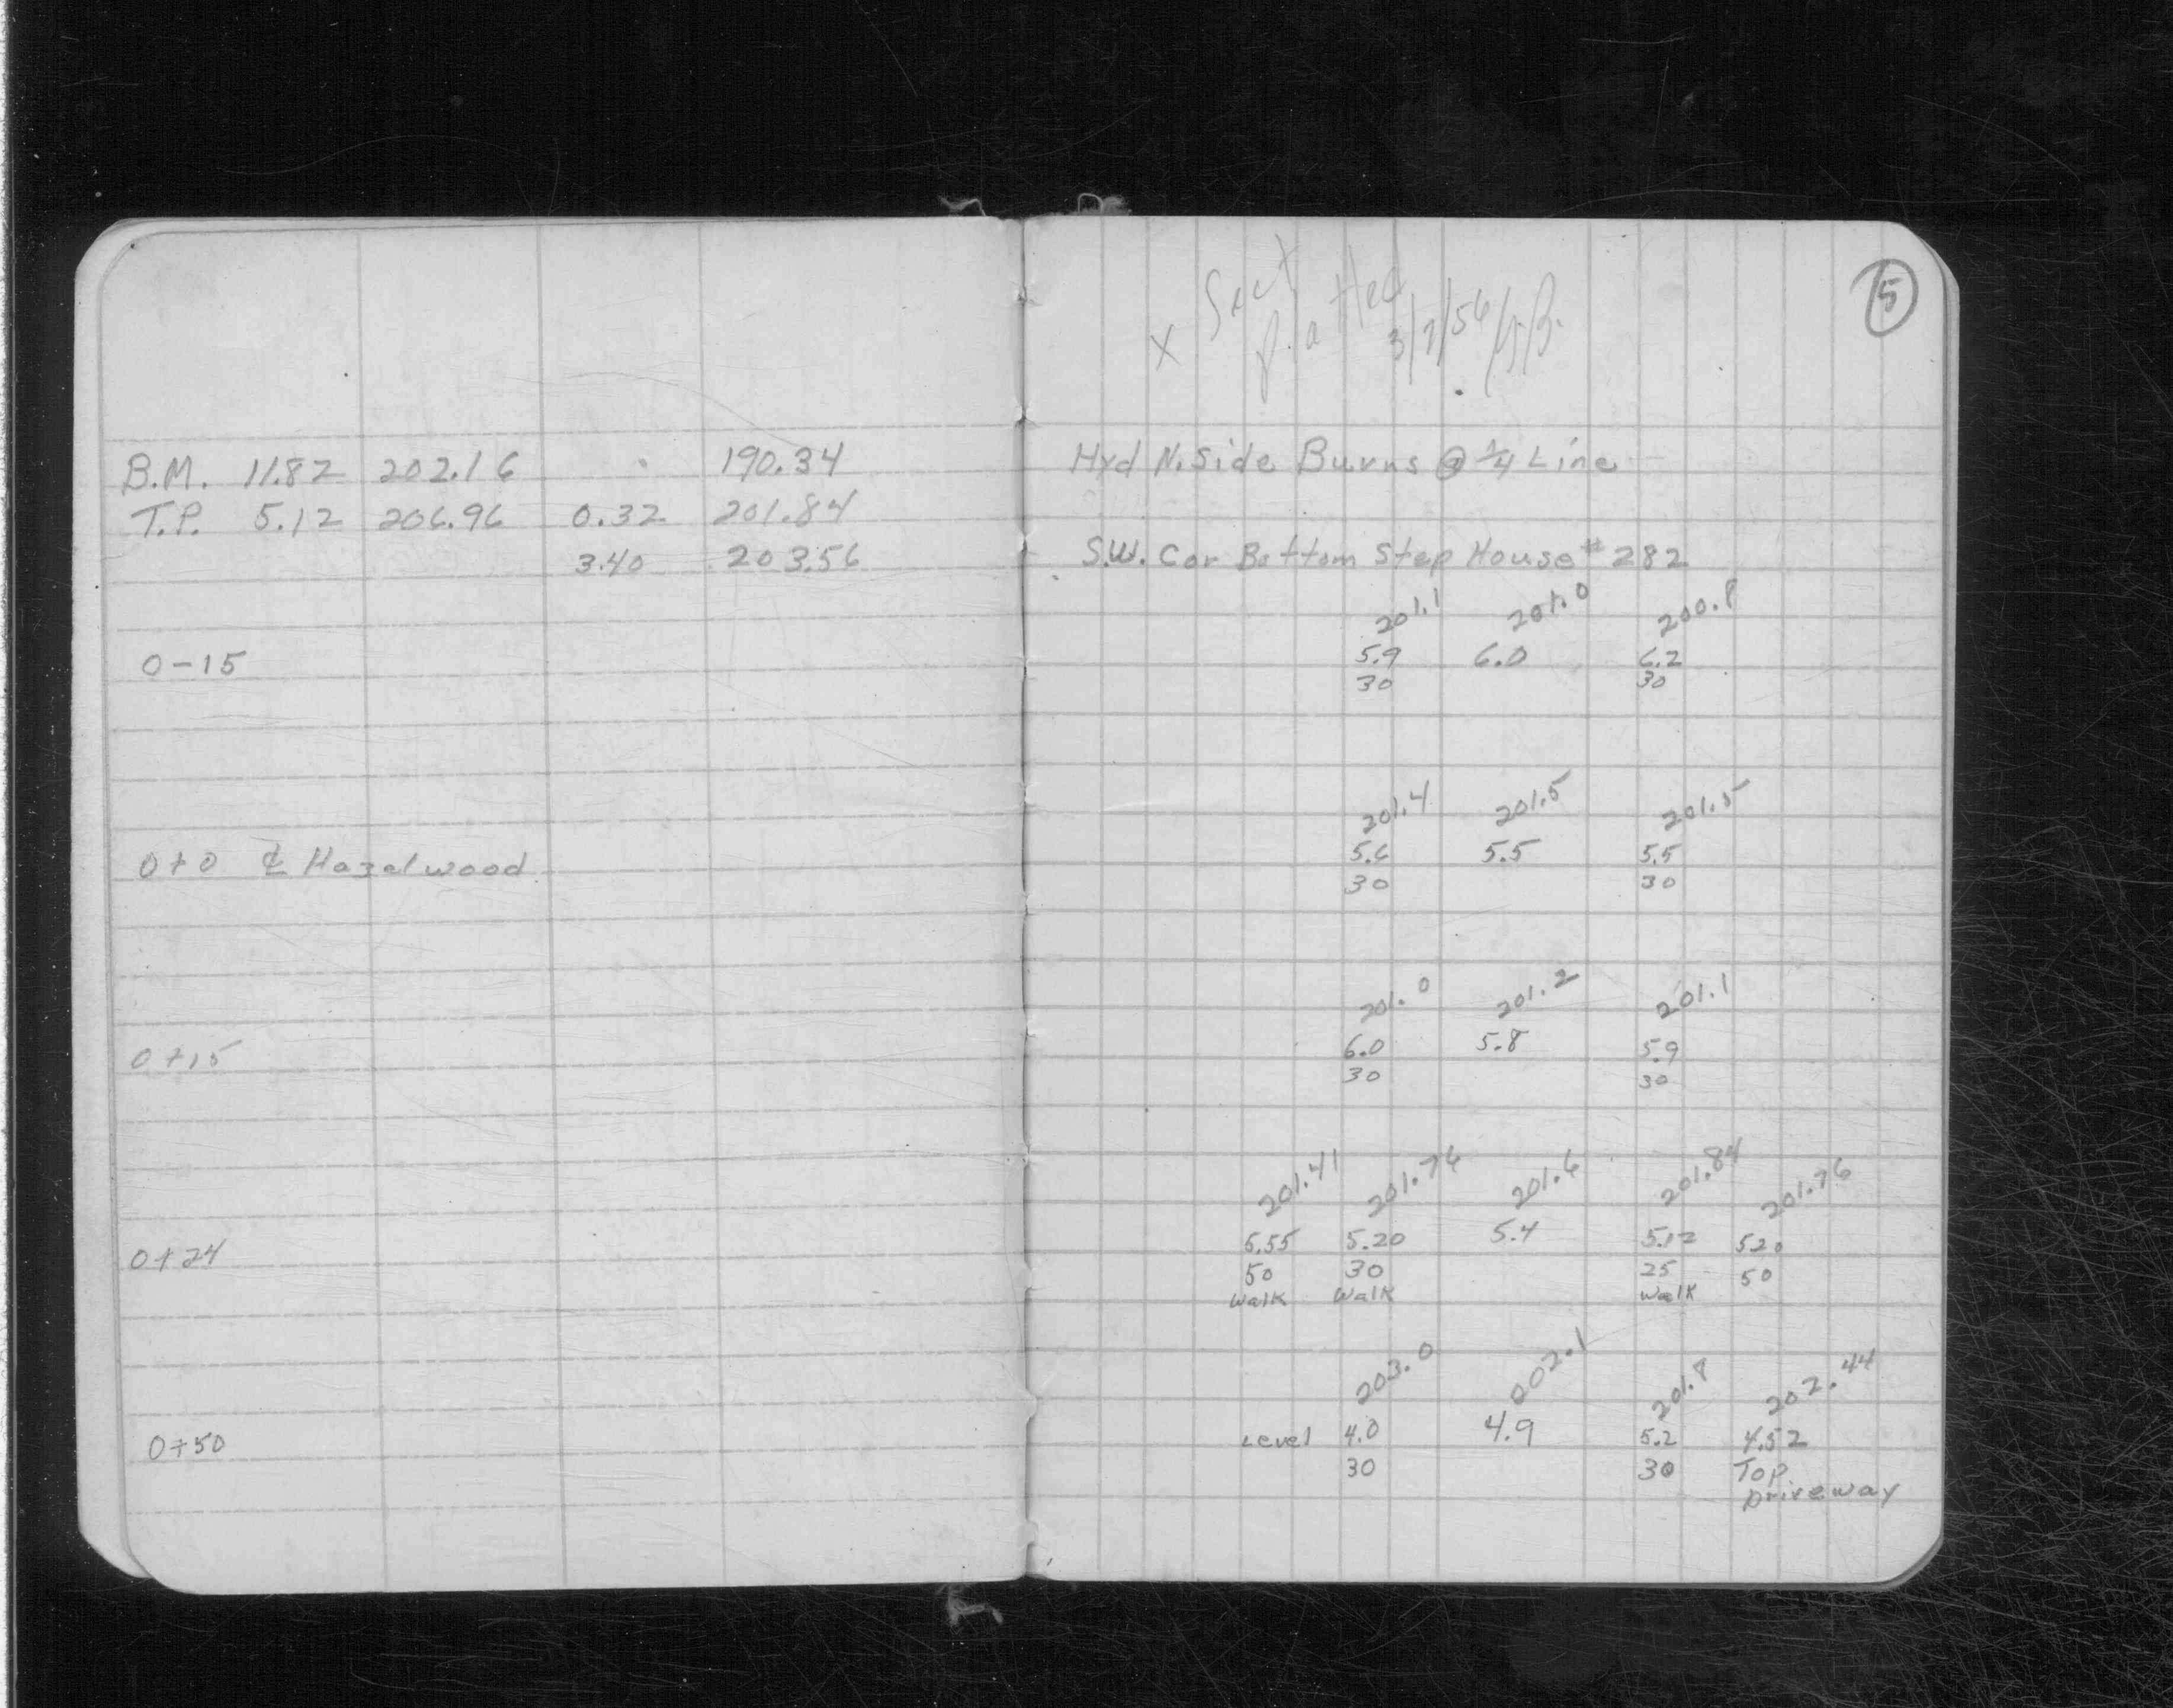 5
X Sect Plotted 3/7/56
B.M. 11.82 202.16 190.34 Hyd N. Side Burns @ 1/4 Line
T.P. 5.12 206.96 0.32 201.84
3.40 203.56 S.W. Cor Bottom Step House # 282
201.1 201.0 200.8
0-15 5.9 6.0 6.2
30 30
201.4 201.5 201.5
0+0 ℄ Hazelwood 5.6 5.5 5.5
30 30
201.0 201.2 201.1
0+15 6.0 5.8 5.9
30 30
201.41 201.76 201.6 201.84 201.76
0+24 5.55 5.20 5.4 5.12 5.20
50 30 25 50
Walk Walk Walk
203.0 202.1 201.8 202.44
0+50 Level 4.0 4.9 5.2 4.52
30 30 Top
Driveway